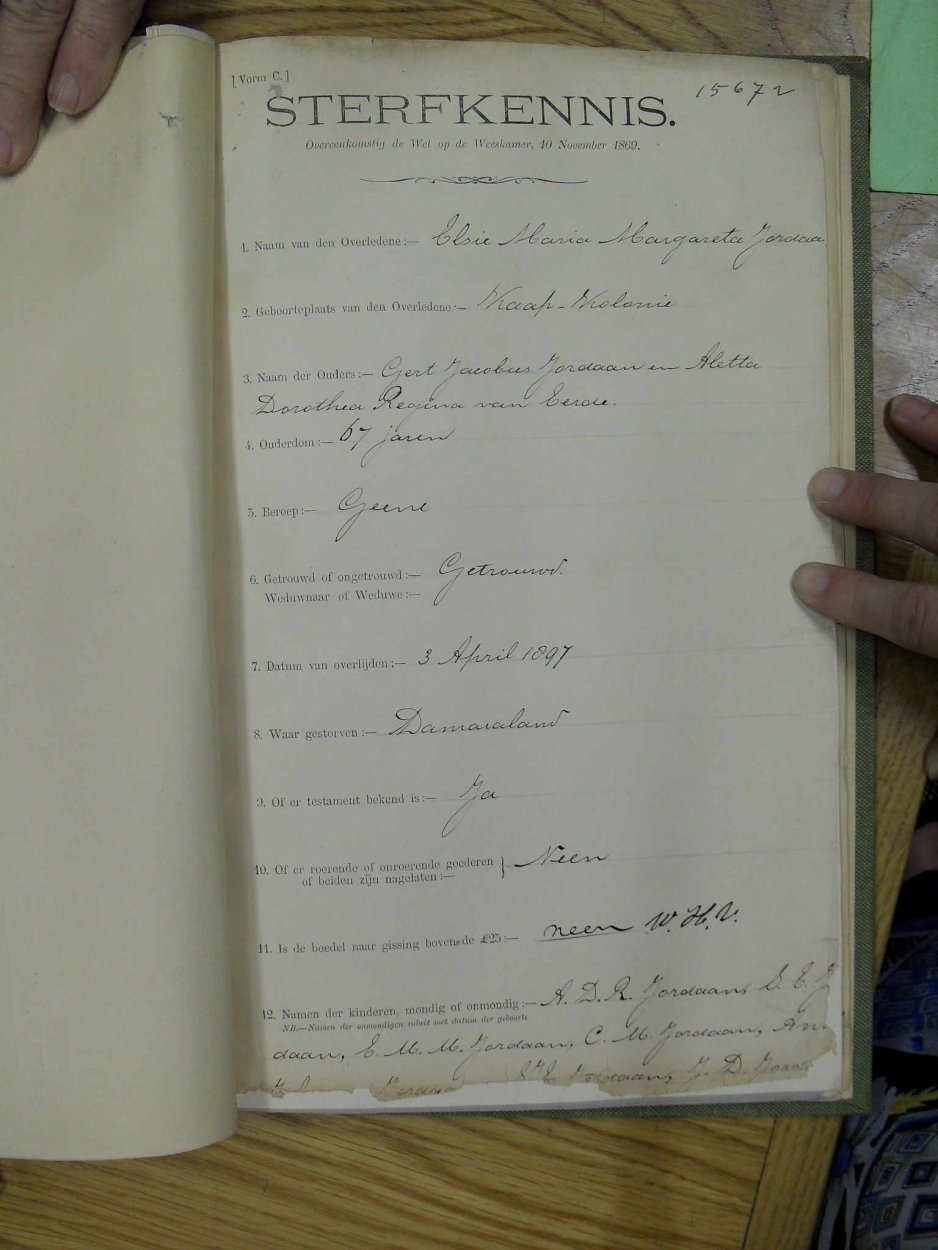 [Vorm C.]
15672
STERFKENNIS.
Overeenkomstig de Wet op de Weeskamer, 10 November 1869.
1. Naam van den Overledene:— Elsie Maria Margareta Jordaa
2. Geboorteplaats van den Overledene:— Kaap-Kolonie
3. Naam der Ouders:— Gert Jacobus Jordaan en Aletta
Dorothea Regina van Eerde.
4. Ouderdom:— 67 jaren
5. Beroep:— Geene
6. Getrouwd of ongetrouwd:— Getrouwd.
Weduwnaar of Weduwe:—
7. Datum van overlijden:— 3 April 1897
8. Waar gestorven:— Damaraland
9. Of er testament bekend is:— Ja
10. Of er roerende of onroerende goederen } Neen
of beiden zijn nagelaten:—
11. Is de boedel naar gissing boven de £25:— neen W. H. V.
12. Namen der kinderen, mondig of onmondig:— A. D. R. Jordaan, G. E. J
NB.—Namen der onmondigen voluit met datum der geboorte
daan, E. M. M. Jordaan, C. M. Jordaan, An
Jordaan, J. D. Jord